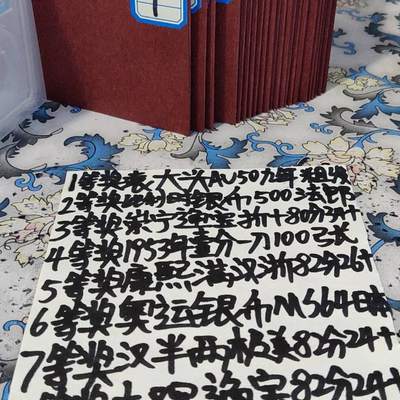 1等奖袁大头AU50九年粗发
2等奖比利时银币500法郎
3等奖崇宁通宝折十80分34+
4等奖1953年壹分一刀100张
5等奖康熙满汉浙82分26+
6等奖奥运银币MS64日本
7等奖汉半两极美82分24+
等奖 通宝82分24+